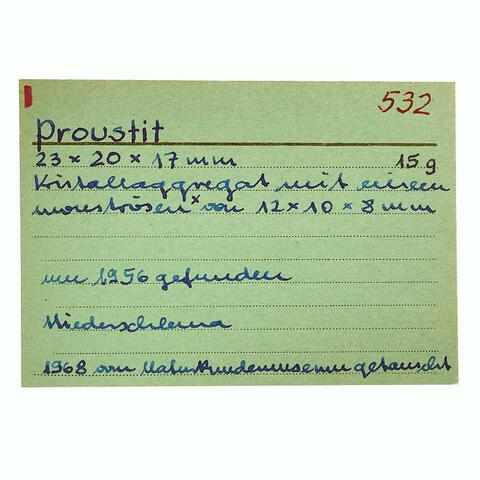 532
Proustit
23 × 20 × 17 mm 15 g
Kristallaggregat mit einem
monströsen x von 12 × 10 × 8 mm
um 1956 gefunden
Niederschlema
1968 von Naturkundemuseum getauscht